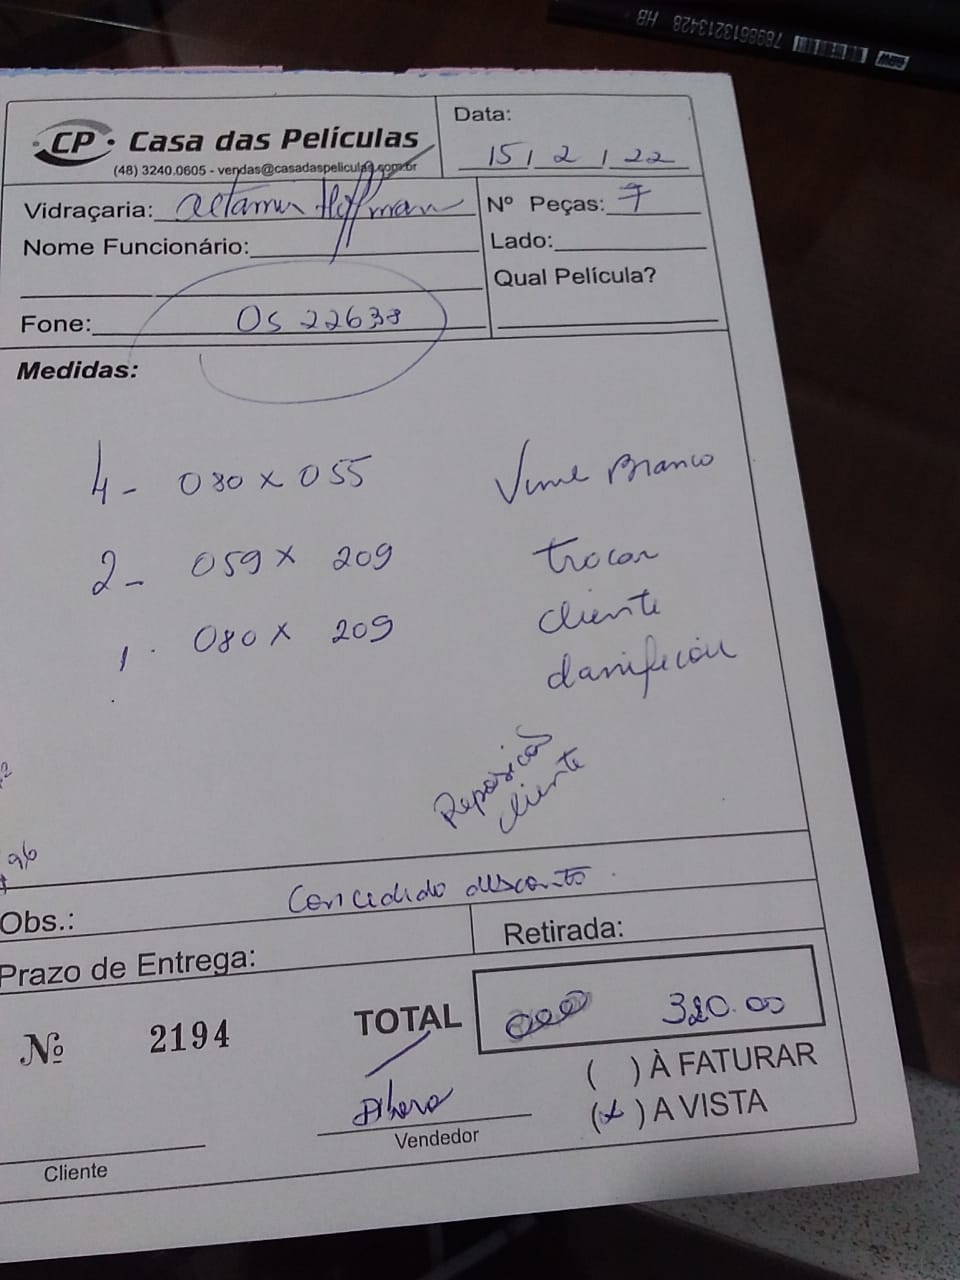 7898613213428 HB
CP Casa das Películas
(48) 3240.0605 - vendas@casadaspeliculas.com.br
Data:
15/2/22
Vidraçaria: Altamir Hoffman
Nº Peças: 7
Nome Funcionário:
Lado:
Qual Película?
Fone: OS 22638
Medidas:
4 - 080 x 055 Vime Branco
2 - 059 x 209 trocar
1 . 080 x 209 cliente
danificou
Reposicao
cliente
96
Obs.: Concedido desconto
Prazo de Entrega:
Retirada:
Nº 2194
TOTAL 320.00
( ) À FATURAR
(x) A VISTA
Vendedor
Cliente